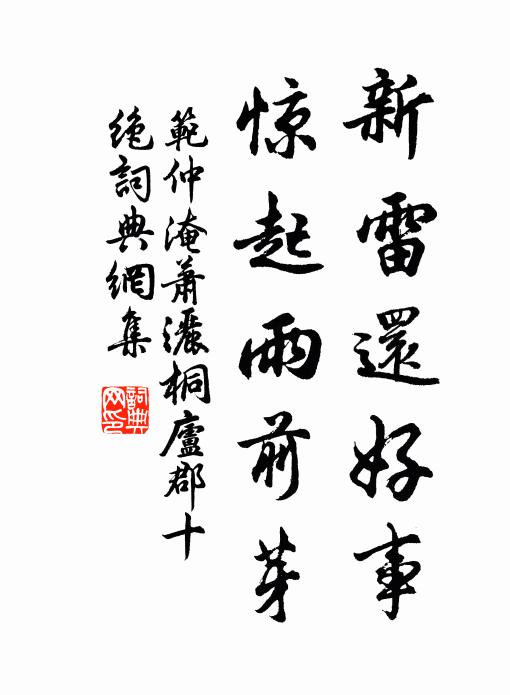 新雷還好事
惊起雨前芽
範仲淹蕭灑桐廬郡十
絶詞典網集
詞典
网印